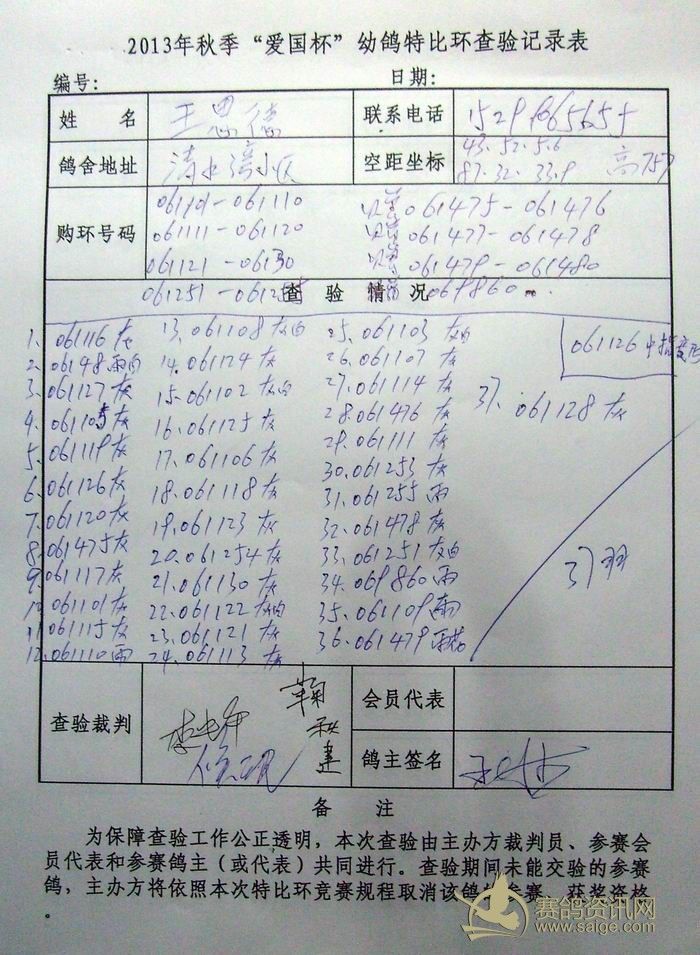 2013年秋季“爱国杯”幼鸽特比环查验记录表
编号： 日期：
姓 名 王恩德 联系电话
鸽舍地址 清水湾小区 空距坐标 43.52.5.6
87.32.33.9 高757
购环号码 061101-061110 061475-061476
061111-061120 061477-061478
061121-06130 061479-061480
061251-0612 查 验 情 况 069860
1. 061116灰 13.061108灰白 25.061103灰白
2. 06148雨白 14.061124灰 26.061107灰 061126中指变形
3. 061127灰 15.061102灰白 27.061114灰
4. 061105灰 16.061125灰 28.061476灰 37.061128灰
5. 061119灰 17.061106灰 29.061111灰
6. 061126灰 18.061118灰 30.061253灰
7. 061120灰 19.061123灰 31.061255雨
8. 061475灰 20.061254灰 32.061478灰
9. 061117灰 21.061130灰 33.061251灰白 37羽
10.061101灰 22.061122灰白 34.069860雨
11.061115灰 23.061121灰 35.061109雨
12.061110雨 24.061113灰 36.061479雨
查验裁判 鞠秋建 会员代表
鸽主签名
备 注
为保障查验工作公正透明，本次查验由主办方裁判员、参赛会
员代表和参赛鸽主（或代表）共同进行。查验期间未能交验的参赛
鸽，主办方将依照本次特比环竞赛规程取消该鸽的参赛、获奖资格
。
赛鸽资讯网
www.saige.com